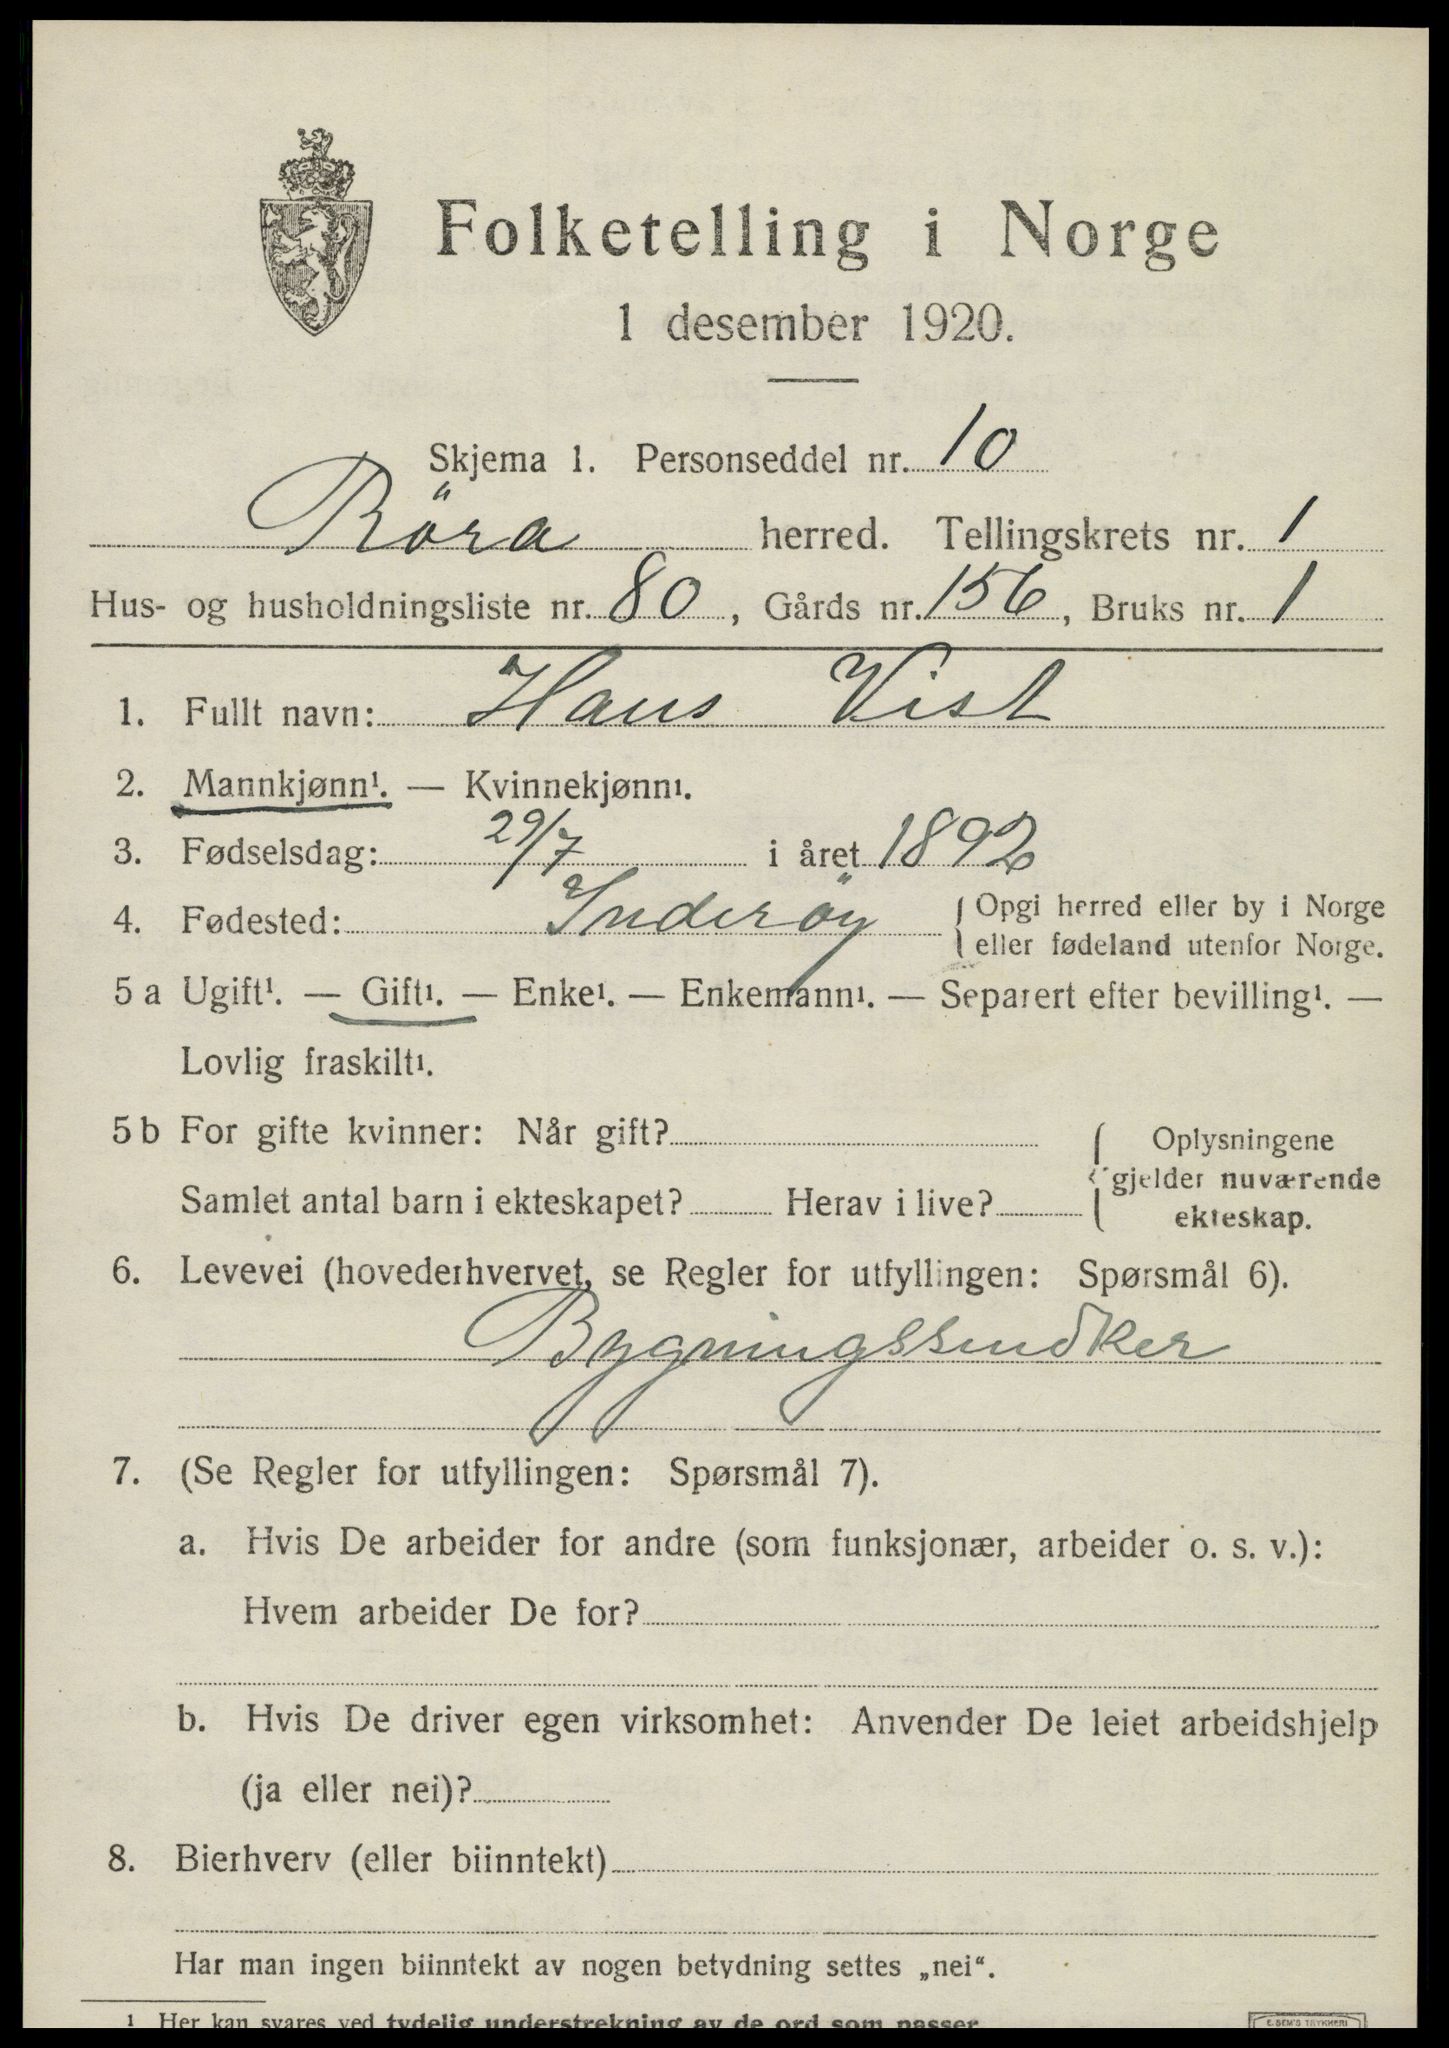 Folketelling i Norge
1 desember 1920.
Skjema 1. Personseddel nr. 10
Röra herred. Tellingskrets nr. 1
Hus- og husholdningsliste nr. 80, Gårds nr. 156, Bruks nr. 1
1. Fullt navn: Hans Vist
2. Mannkjønn¹. — Kvinnekjønn¹.
3. Fødselsdag: 29/7 i året 1892
4. Fødested: Inderöy { Opgi herred eller by i Norge
eller fødeland utenfor Norge.
5 a Ugift¹. — Gift¹. — Enke¹. — Enkemann¹. — Separert efter bevilling¹. —
Lovlig fraskilt¹.
5 b For gifte kvinner: Når gift?
Samlet antal barn i ekteskapet? Herav i live?
{ Oplysningene
gjelder nuværende
ekteskap.
6. Levevei (hovederhvervet, se Regler for utfyllingen: Spørsmål 6).
Bygningssnedker
7. (Se Regler for utfyllingen: Spørsmål 7).
a. Hvis De arbeider for andre (som funksjonær, arbeider o. s. v.):
Hvem arbeider De for?
b. Hvis De driver egen virksomhet: Anvender De leiet arbeidshjelp
(ja eller nei)?
8. Bierhverv (eller biinntekt)
Har man ingen biinntekt av nogen betydning settes „nei“.
¹ Her kan svares ved tydelig understrekning av de ord som passer
E. SEM'S TRYKKERI